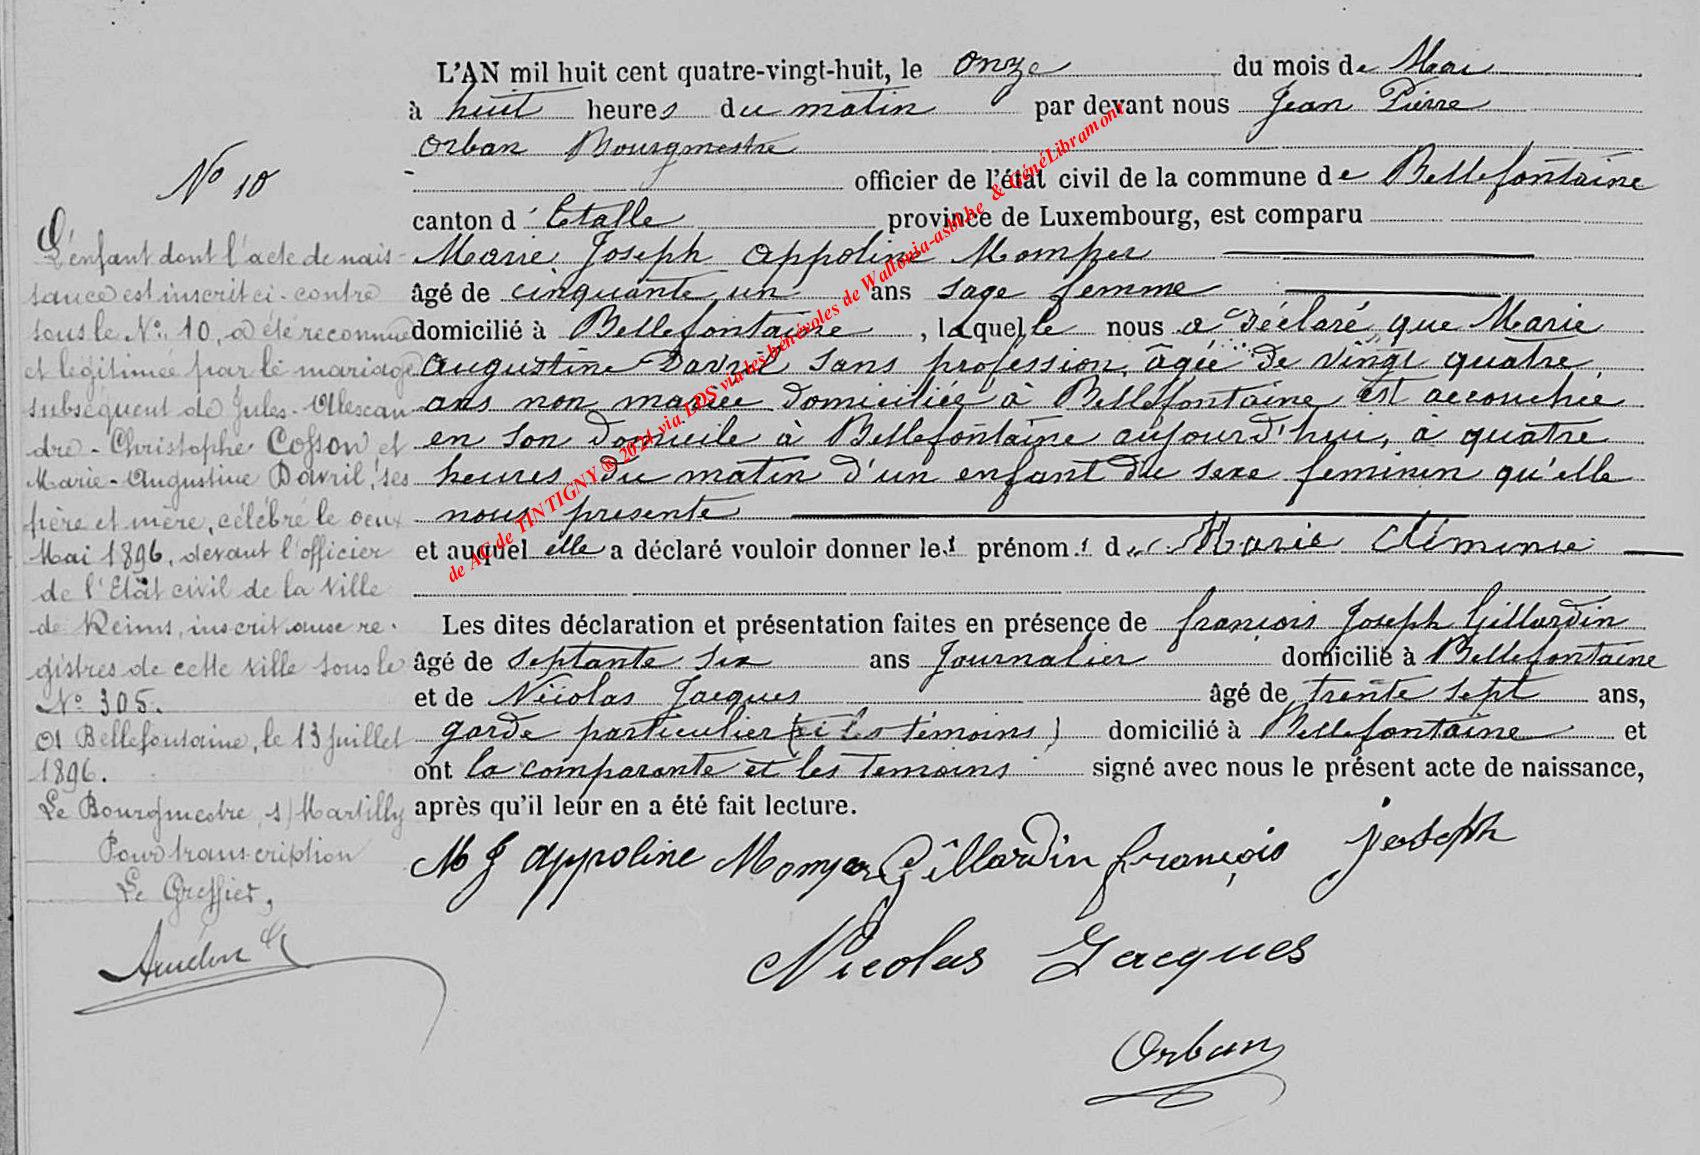 N° 10
L'enfant dont l'acte de nais-
sance est inscrit ci-contre
sous le N°: 10, a été reconnue
et légitimée par le mariage
subséquent de Jules-Alexan
dre-Christophe Cosson et
Marie-Augustine Davril, ses
père et mère, célébré le deux
Mai 1896, devant l'officier
de l'Etat civil de la Ville
de Reims, inscrit aux re-
gistres de cette ville sous le
N° 305.
A Bellefontaine, le 13 Juillet
1896.
Le Bourgmestre, s/ Martilly
Pour transcription
Le Greffier,
L'AN mil huit cent quatre-vingt-huit, le onze du mois de Mai
à huit heures du matin par devant nous Jean Pierre
Orban Bourgmestre
officier de l'état civil de la commune de Bellefontaine
canton d'Etalle province de Luxembourg, est comparu
Marie Joseph Appoline Momper
âgé de cinquante un ans Sage femme
domicilié à Bellefontaine, laquelle nous a Déclaré que Marie
Augustine Davril sans profession, âgée de vingt quatre
ans non mariée Domiciliée à Bellefontaine est accouchée
en son domicile à Bellefontaine aujourd'hui, à quatre
heures du matin d'un enfant du sexe feminin qu'elle
nous présente
et auquel elle a déclaré vouloir donner les prénoms de Marie Clémence
Les dites déclaration et présentation faites en présence de françois Joseph Gillardin
âgé de septante six ans Journalier domicilié à Bellefontaine
et de Nicolas Jacques âgé de trente sept ans,
garde particulier (et les témoins) domicilié à Bellefontaine et
ont la comparante et les temoins signé avec nous le présent acte de naissance,
après qu'il leur en a été fait lecture.
M J Appoline Momper Gillardin françois joseph
Nicolas Jacques
Orban
de AC de TINTIGNY ® 2024 via LDS via les bénévoles de Wallonia-asbl.be & GénéLibramont